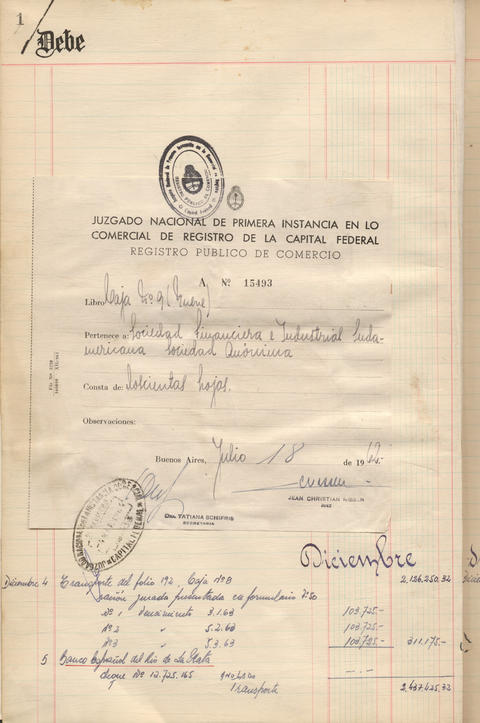 1
Debe
JUZGADO NACIONAL DE PRIMERA INSTANCIA EN LO
COMERCIAL DE REGISTRO DE LA CAPITAL FEDERAL
REGISTRO PÚBLICO DE COMERCIO
A Nº 15493
Libro: Caja Nº 9 (Nueve)
Pertenece a: Sociedad Financiera e Industrial Suda-
mericana Sociedad Anónima
Consta de: Doscientas hojas.
Observaciones:
Buenos Aires, Julio 18 de 1962.
JEAN CHRISTIAN NISSEN
JUEZ
Dra. TATIANA SCHIFRIS
SECRETARIA
Diciembre
Diciembre 4 Transporte del folio 194, Caja Nº 8 2,126,250,32
jurada presentada en formulario
Nº 1 vencimiento 3.1.63 103.725.-
Nº 2 " 5.2.63 103.725.-
Nº 3 " 5.3.63 103.725.- 311.175.-
5 Banco Español del Río de La Plata -.-
cheque Nº 12.725.165
Transporte 2,437,425,32